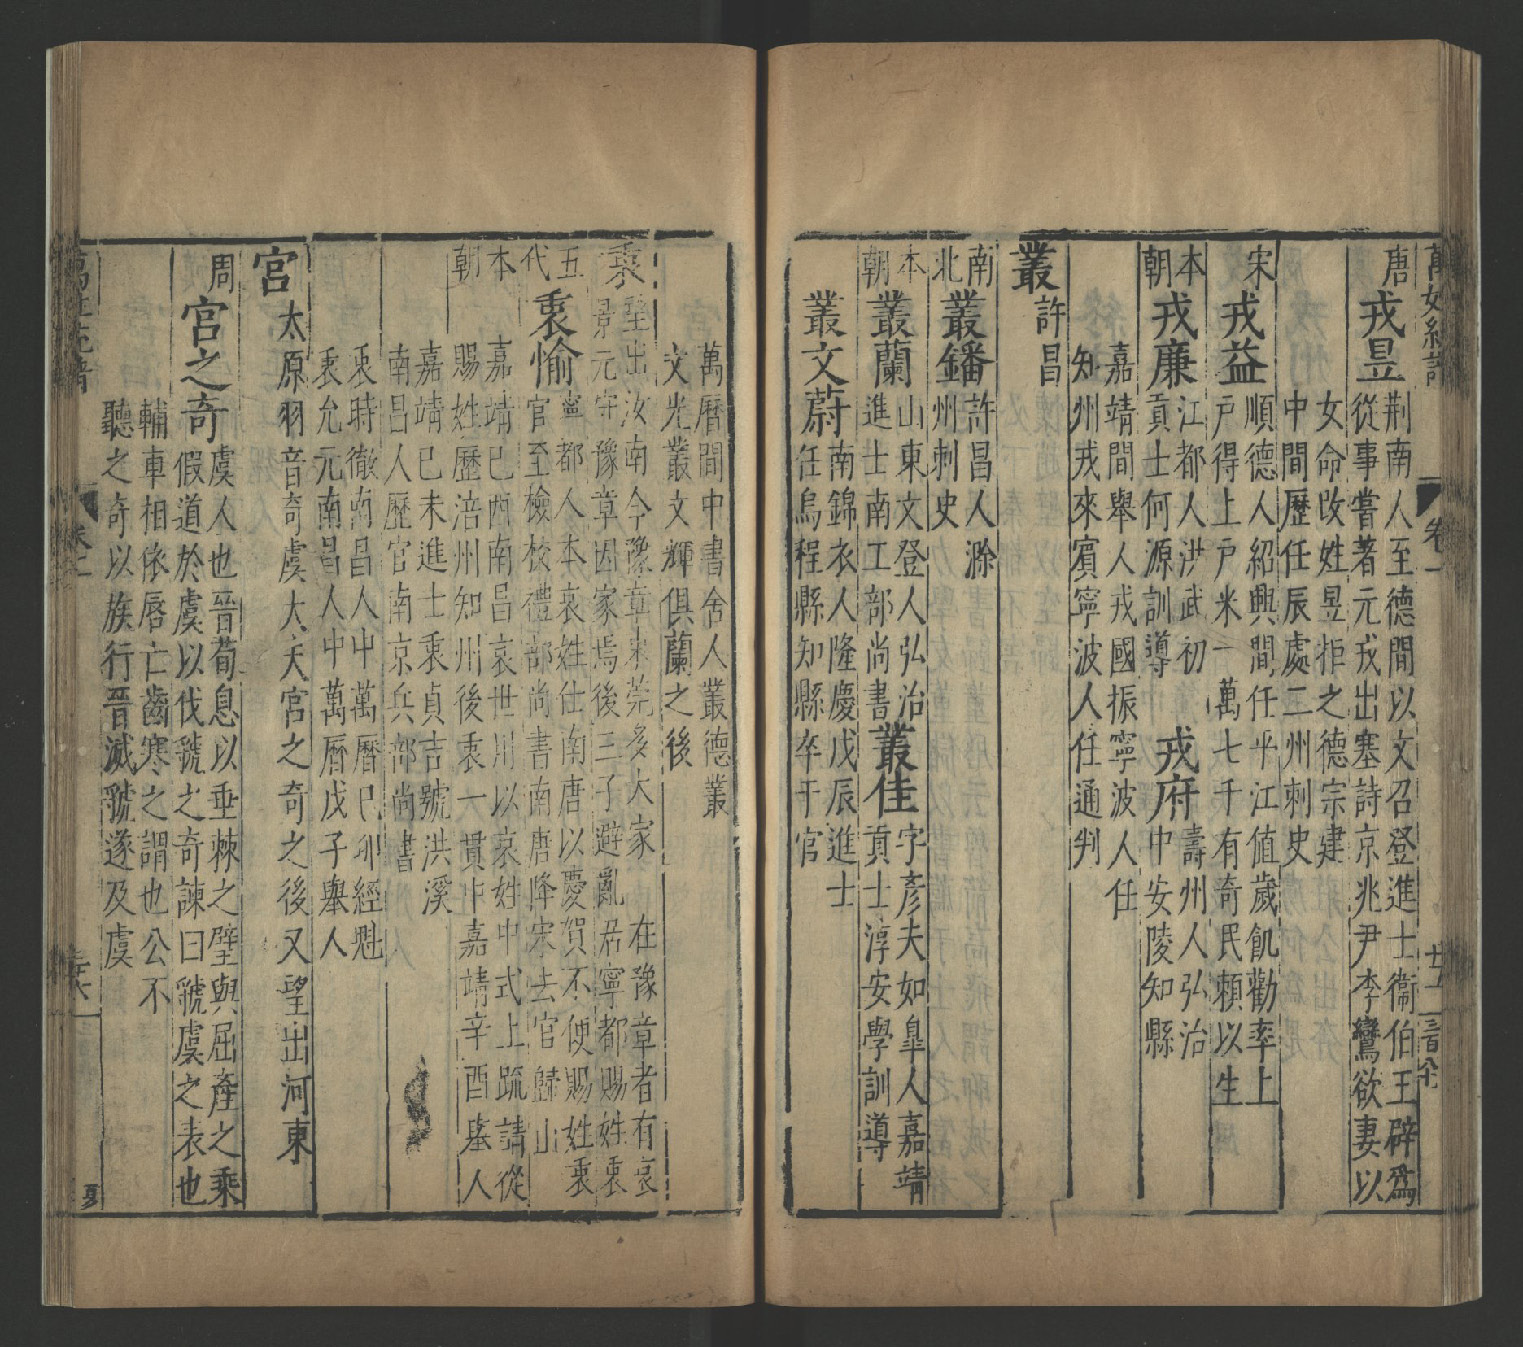 萬姓統譜
卷一
唐
戎昱
荆南人至德間以文召登進士衞伯王辟爲
從事嘗著元戎出塞詩京兆尹李鸞欲妻以
女命改姓昱拒之德宗建
中間歷任辰處二州刺史
宋
戎益
順德人紹興間任平江值歲飢勸率上
戸得上戸米一萬七千有奇民賴以生
本朝
戎廉
江都人洪武初
貢士何源訓導
戎府
壽州人弘治
中安陵知縣
嘉靖間舉人戎國振寧波人任
知州戎來賓寧波人任通判
叢
許昌
南北
叢鐇
許昌人滁
州刺史
本朝
叢蘭
山東文登人弘治
進士南工部尚書
叢佳
字彥夫如臯人嘉靖
貢士淳安學訓導
叢文蔚
南錦衣人隆慶戊辰進士
任烏程縣知縣卒于官
萬曆間中書舍人叢德叢
文光叢文輝俱蘭之後
在豫章者有哀
景元守豫章因家焉後三子避亂居寧都賜姓衷
五代
衷愉
寧都人本哀姓仕南唐以慶賀不便賜姓衷
官至檢校禮部尚書南唐降宋去官歸山
本朝
嘉靖己酉南昌哀世用以哀姓中式上疏請從
賜姓歷涪州知州後衷一貫中嘉靖辛酉舉人
嘉靖己未進士衷貞吉號洪溪
南昌人歷官南京兵部尚書
衷時徹南昌人中萬曆己卯經魁
衷允元南昌人中萬曆戊子舉人
宮
太原羽音奇虞大夫宮之奇之後又望出河東
周
宮之奇
虞人也晉荀息以垂棘之璧與屈產之乘
假道於虞以伐虢之奇諫曰虢虞之表也
輔車相依唇亡齒寒之謂也公不
聽之奇以族行晉滅虢遂及虞